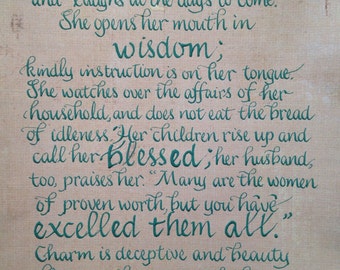 and laughs at the days to come.
She opens her mouth in
wisdom;
kindly instruction is on her tongue.
She watches over the affairs of her
household, and does not eat the bread
of idleness. Her children rise up and
call her blessed; her husband,
too, praises her. "Many are the women
of proven worth but you have
excelled them all."
Charm is deceptive and beauty